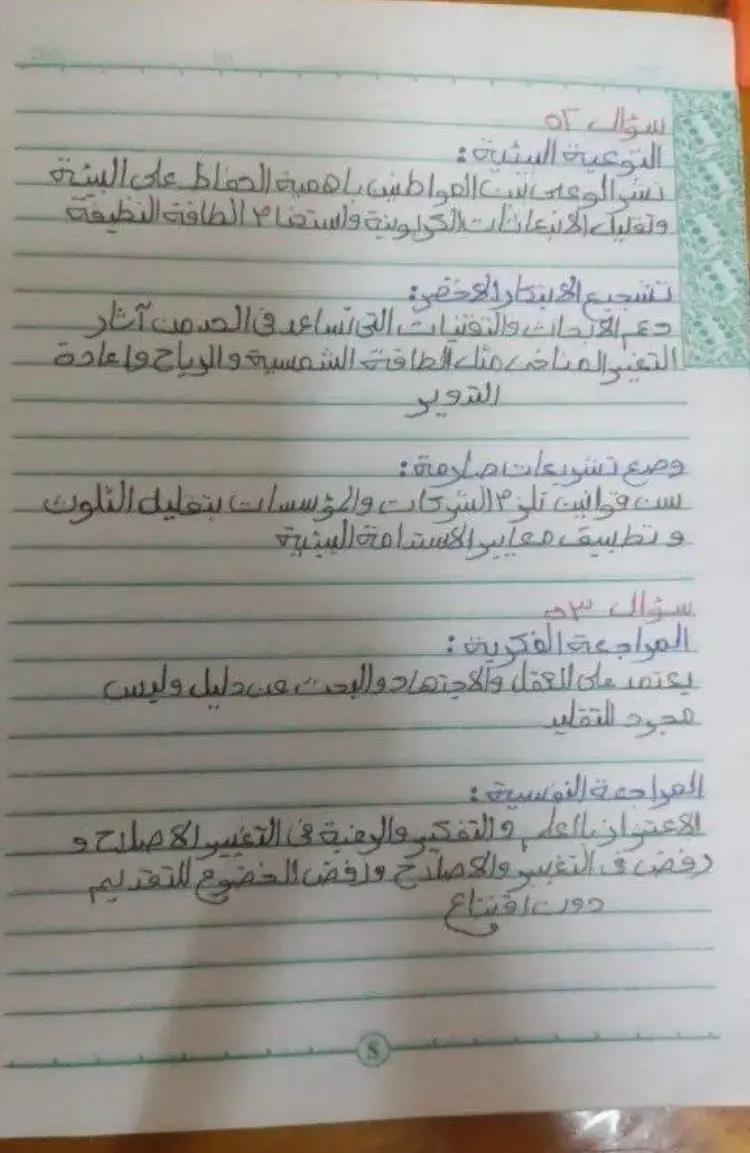 سؤال ٥٢
التوعية البيئية :
نشر الوعى بين المواطنين باهمية الحفاظ على البيئة
وتقليل الانبعاثات الكربونية واستخدام الطاقة النظيفة
تشجيع الابتكار الاخضر:
دعم الابحاث والتقنيات التى تساعد فى الحد من آثار
التغير المناخى مثل الطاقة الشمسية والرياح واعادة
التدوير
وضع تشريعات صارمة :
سن قوانين تلزم الشركات والمؤسسات بتقليل التلوث
و تطبيق معايير الاستدامة البيئية
سؤال ٥٣
المراجعة الفكرية :
يعتمد على العقل والاجتهاد والبحث عن دليل وليس
مجرد التقليد
المراجعة النفسية :
الاعتزاز بالعلم والتفكير والرغبة فى التغيير الاصلاح و
رفض فى التغيير والاصلاح ورفض الخضوع للتقديم
دون اقتناع
8